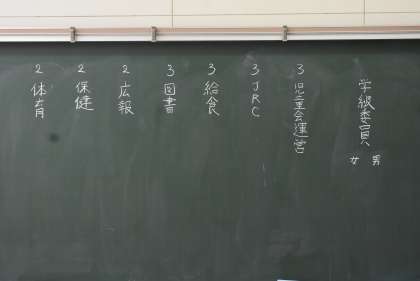 学級委員
男
女
3 児童会運営
3 JRC
3 給食
3 図書
2 広報
2 保健
2 体育